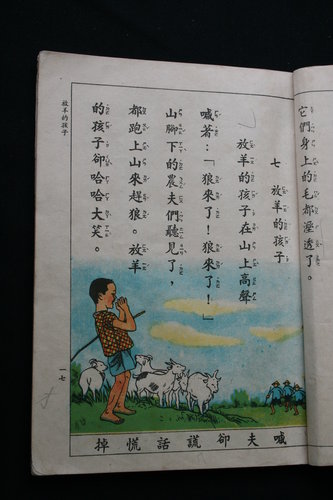 它們身上的毛都溼透了。
七 放羊的孩子
放羊的孩子在山上高聲
喊著:「狼來了!狼來了!」
山腳下的農夫們聽見了,
都跑上山來趕狼。放羊
的孩子卻哈哈大笑。
喊夫卻謊話慌掉
放羊的孩子
一七